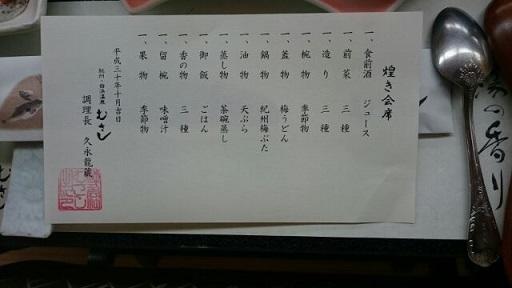 煌き会席
一、食前酒 ジュース
一、前菜 三種
一、造り 三種
一、椀物 季節物
一、蓋物 梅うどん
一、鍋物 紀州梅ぶた
一、油物 天ぷら
一、蒸し物 茶碗蒸し
一、御飯 ごはん
一、香の物 三種
一、留椀 味噌汁
一、果物 季節物
平成三十年十月吉日
紀州・白浜温泉 むさし
調理長 久永龍蔵
の香り
むさし